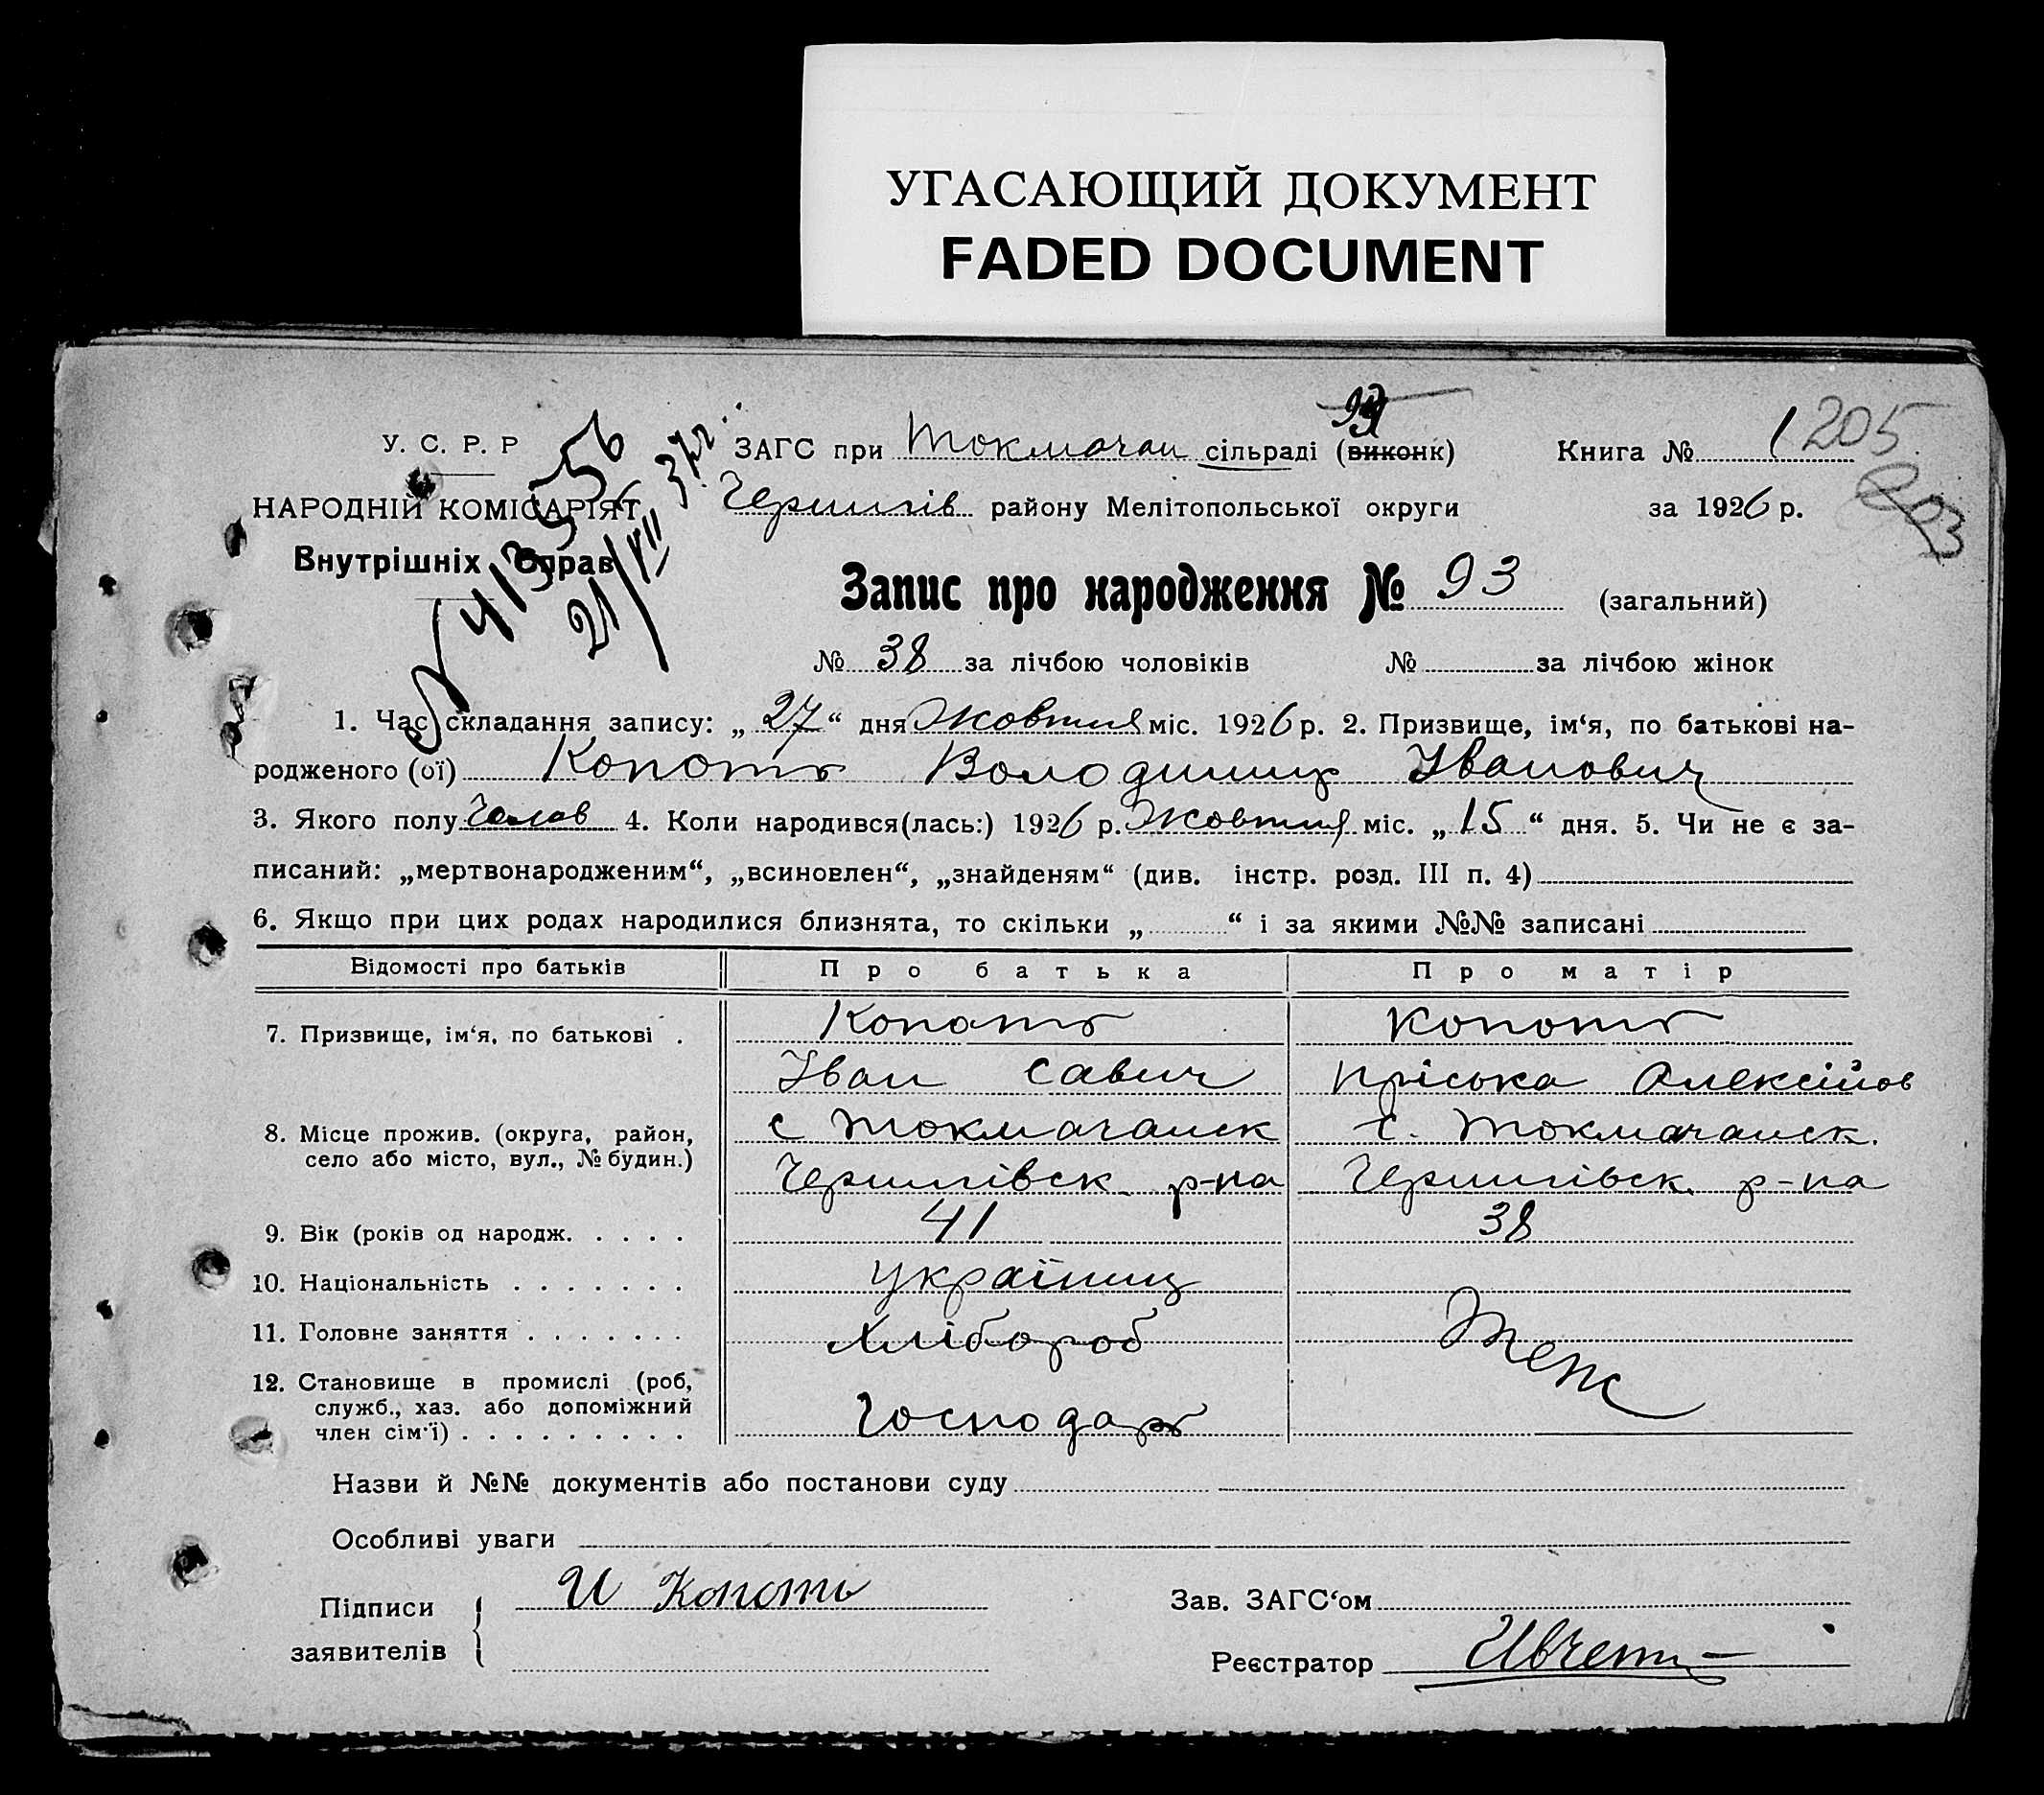 УГАСАЮЩИЙ ДОКУМЕНТ
FADED DOCUMENT
У. С. Р. Р
НАРОДНІЙ КОМІСАРІЯТ
Внутрішніх Справ
21/VII
ЗАГС при Токмачан сільраді (виконк)
Чернигів району Мелітопольської округи
Книга № 1
205
203
за 1926 р.
Запис про народження № 93 (загальний)
№ 38 за лічбою чоловіків № за лічбою жінок
1. Час складання запису: „27“ дня Жовтня міс. 1926 р. 2. Призвище, ім‘я, по батькові на-
родженого (ої) Копоть Володимир Іванович
3. Якого полу Чолов 4. Коли народився(лась:) 1926 р. Жовтня міс. „15“ дня. 5. Чи не є за-
писаний: „мертвонародженим“, „всиновлен“, „знайденям“ (див. інстр. розд. III п. 4)
6. Якщо при цих родах народилися близнята, то скільки „ “ і за якими №№ записані
Відомості про батьків Про батька Про матір
7. Призвище, ім‘я, по батькові . Копоть Копоть
Іван Савич Пріська Олексійов
8. Місце прожив. (округа, район, с Токмачанск с. Токмачанск.
село або місто, вул., № будин.) Чернигівск р-на Чернигівск. р-на
9. Вік (років од народж. . . . . 41 38
10. Національність . . . . . . . Українец
11. Головне заняття . . . . . . . Хлібороб Теж
12. Становище в промислі (роб,
служб., хаз. або допоміжний
член сім‘ї) . . . . . . . . . Господарь
Назви й №№ документів або постанови суду
Особливі уваги
Підписи
заявителів
И Копоть
Зав. ЗАГС‘ом
Реєстратор